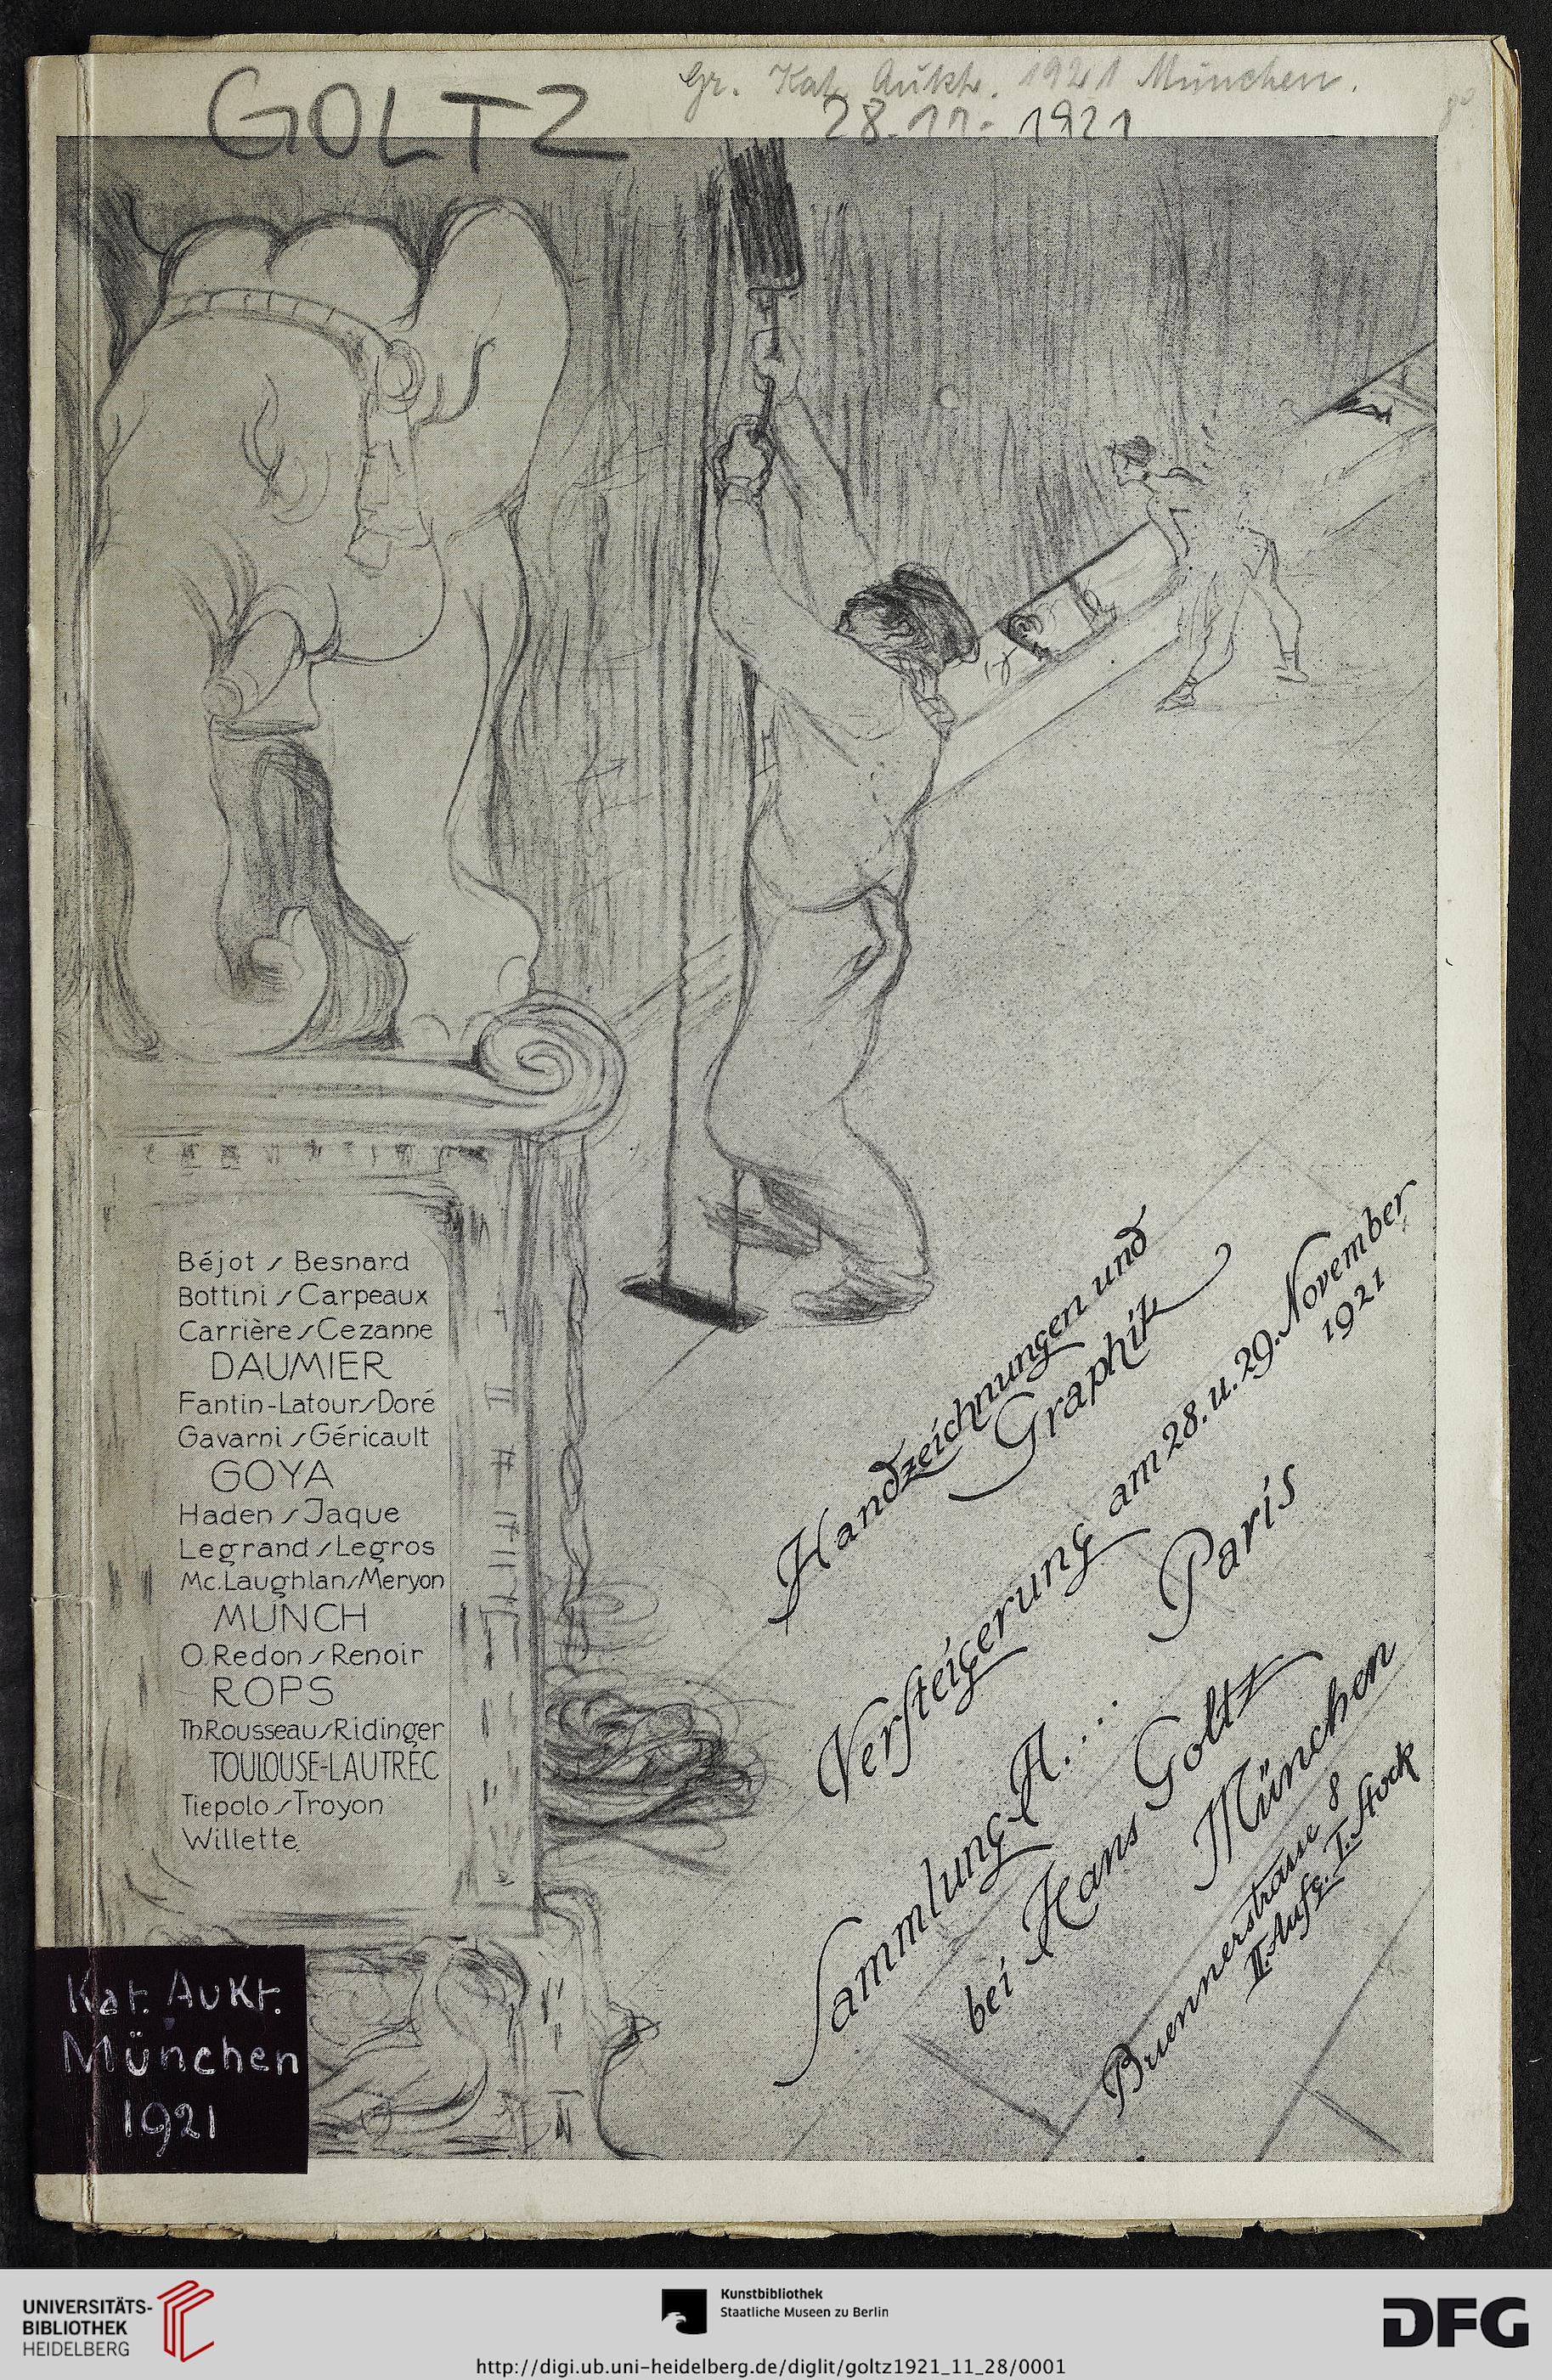 GOLTZ
Gr. Kat. Aukt. 1921 München.
28.11.1921
8°
Béjot / Besnard
Bottini / Carpeaux
Carrière / Cezanne
DAUMIER
Fantin-Latour / Doré
Gavarni / Géricault
GOYA
Haden / Jaque
Legrand / Legros
Mc.Laughlan / Meryon
MUNCH
O.Redon / Renoir
ROPS
Th.Rousseau / Ridinger
TOULOUSE-LAUTREC
Tiepolo / Troyon
Willette
Handzeichnungen und
Graphik
Versteigerung am 28. u. 29. November
1921
Sammlung A.... Paris
bei Hans Goltz
München
Briennerstrasse 8
II. Aufg. I. Stock
Kat. Aukt.
München
1921
UNIVERSITÄTS-
BIBLIOTHEK
HEIDELBERG
Kunstbibliothek
Staatliche Museen zu Berlin
DFG
http://digi.ub.uni-heidelberg.de/diglit/goltz1921_11_28/0001